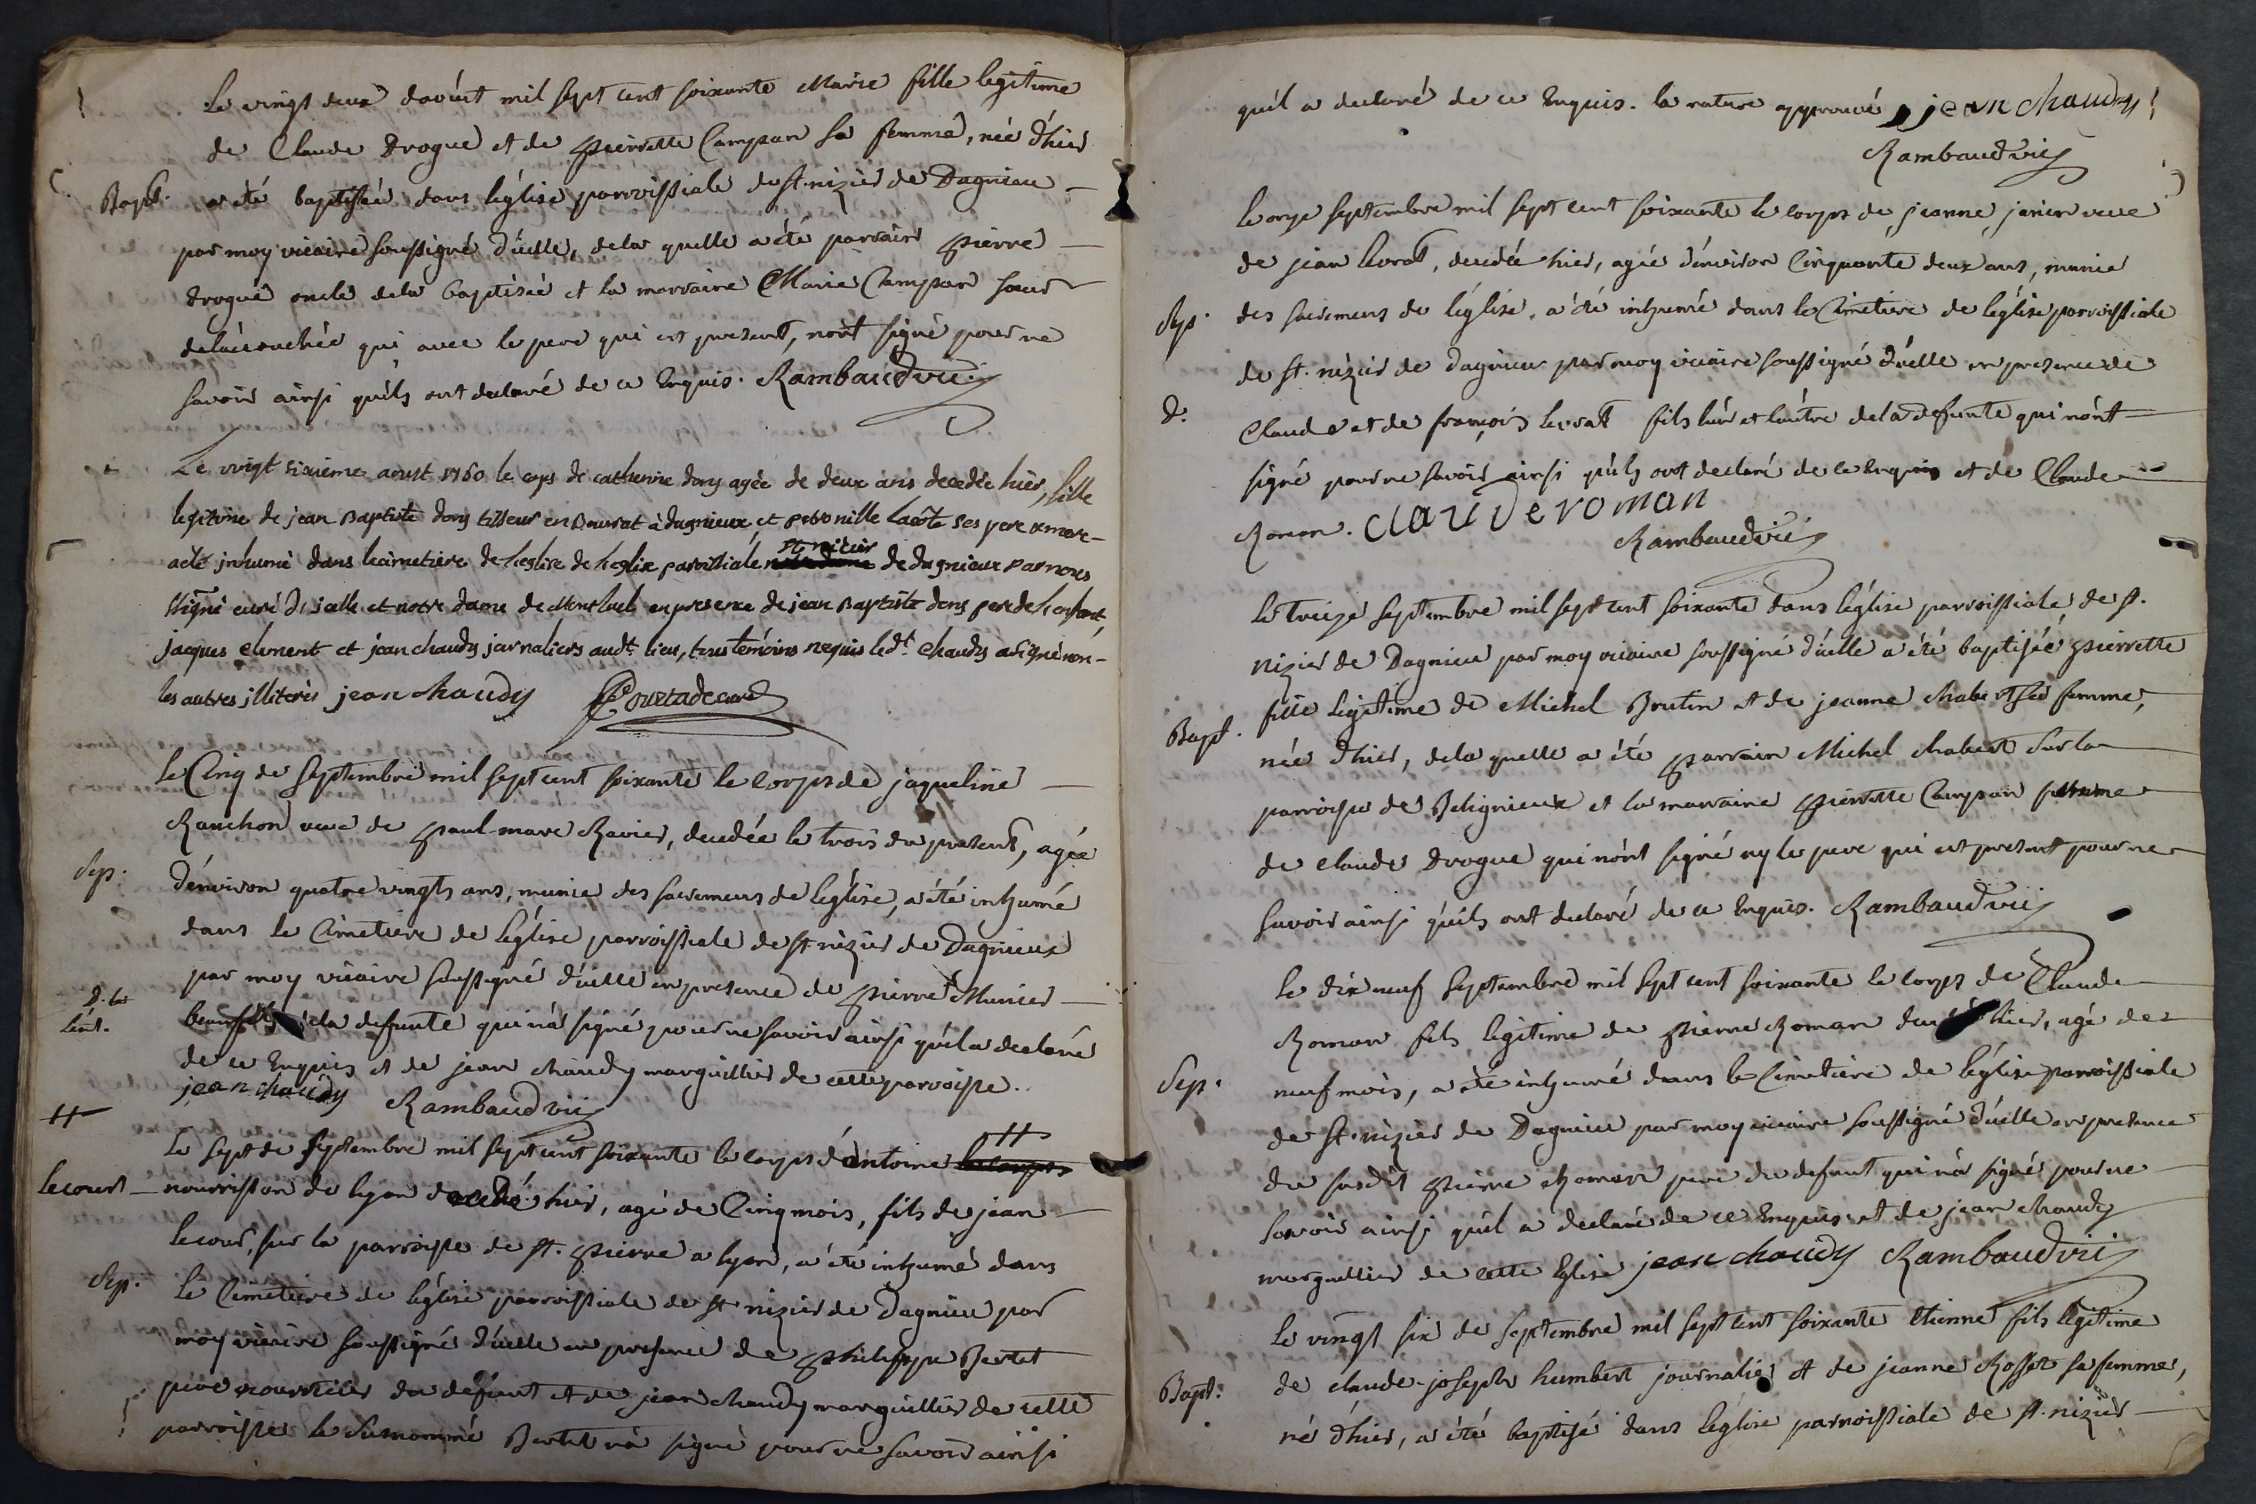 Le vingt deux d'aoust mil sept cent soixante Marie fille legitime
de Claude Drogue et de pierrette Campan sa femme, née d'hier
Bapt. a été baptisée dans l'église parroissiale de st. nizier de Dagnieu
par moy vicaire soussigné d'icelle, de la quelle a été parrain pierre
Drogue oncle de la baptisée et la marraine Marie Campan soeur
de l'acouchée qui avec le pere qui est present, n'ont signé pour ne
savoir ainsi qu'ils ont declaré de ce Enquis. Rambaud vic.
Le vingt sixieme aoust 1760 le corps de catherine dony agée de deux ans decedée hier, fille
legitime de jean Baptiste dony tisseur en à dagnieux, et petronille Lacôte ses pere et mere
a été inhumé dans le cimetiere de l'eglise de l'eglise parroissiale st nizier de dagnieux par nous
ssigné curé d'icelle et notre dame de Montluel en presence de jean Baptiste dony pere de l'enfant,
jacques clement et jean chaudy journaliers audt. lieu, tous temoins requis ledt. chaudy a signé non
les autres illiterés jean chaudy Courtade curé
Le Cinq de septembre mil sept cent soixante le corps de jaqueline
Ranchon veuve de paul-marc Ravier, decedée le trois du present, agée
Sep. d'environ quatre vingts ans, munie des sacremens de l'église, a été inhumé
dans le Cimetiere de l'église parroissiale de st nizier de Dagnieux
par moy vicaire soussigné d'icelle en presence de pierre Munier
de la defunte qui n'a signé pour ne savoir ainsi qu'il a declaré
de ce Enquis et de jean chaudy marguillier de cette parroisse.
jean chaudy Rambaud vic
Le sept de septembre mil sept cent soixante le corps d'antoine le corps
lecourt nourrisson de lyon decedé hier, agé de Cinq mois, fils de jean
lecour, sur la parroisse de st. pierre a lyon, a été inhumé dans
Sep. le Cimetiere de l'église parroissiale de st nizier de Dagnieu par
moy vicaire soussigné d'icelle en presence de philippe Bertet
pere nourricier du defunt et de jean chaudy marguillier de cette
parroisse le surnommé Bertet n'a signé pour ne savoir ainsi
qu'il a declaré de ce Enquis. la rature approuvé jean chaudy
Rambaud vic
Le onze septembre mil sept cent soixante le corps de jeanne janin veuve
de jean levrat, decedée hier, agée d'environ Cinquante deux ans, munie
Sep. des sacremens de l'église, a été inhumé dans le Cimetiere de l'église parroissiale
de st. nizier de Dagnieu par moy vicaire soussigné d'icelle en presence de
d. Claude et de françois levrat fils l'un et l'autre de la defunte qui n'ont
signé pour ne savoir ainsi qu'ils ont declaré de ce Enquis et de Claude
Roman. Claude roman
Rambaud vic
Le treize septembre mil sept cent soixante dans l'église parroissiale de st.
nizier de Dagnieu par moy vicaire soussigné d'icelle a été baptisée pierrette
fille legitime de Michel Brutin et de jeanne chabert sa femme,
Bapt. née d'hier, de la quelle a été parrain Michel chabert sur la
parroisse de Beligneux et la marraine pierrette Campan femme
de claude Drogue qui n'ont signé ny le pere qui est present pour ne
savoir ainsi qu'ils ont declaré de ce Enquis. Rambaud vic
Le dix neuf septembre mil sept cent soixante le corps de Claude
Roman fils legitime de pierre Roman decedé hier, agé de
Sep. neuf mois, a été inhumé dans le Cimetiere de l'église parroissiale
de st. nizier de Dagnieu par moy vicaire soussigné d'icelle en presence
du susdit pierre Roman pere du defunt qui n'a signé pour ne
savoir ainsi qu'il a declaré de ce Enquis et de jean chaudy
marguillier de cette Eglise jean chaudy Rambaud vic
Le vingt six de septembre mil sept cent soixante Etienne fils legitime
Bapt. de claude-joseph humbert journalier et de jeanne Rosset sa femme,
né d'hier, a été baptisé dans l'église parroissiale de st. nizier